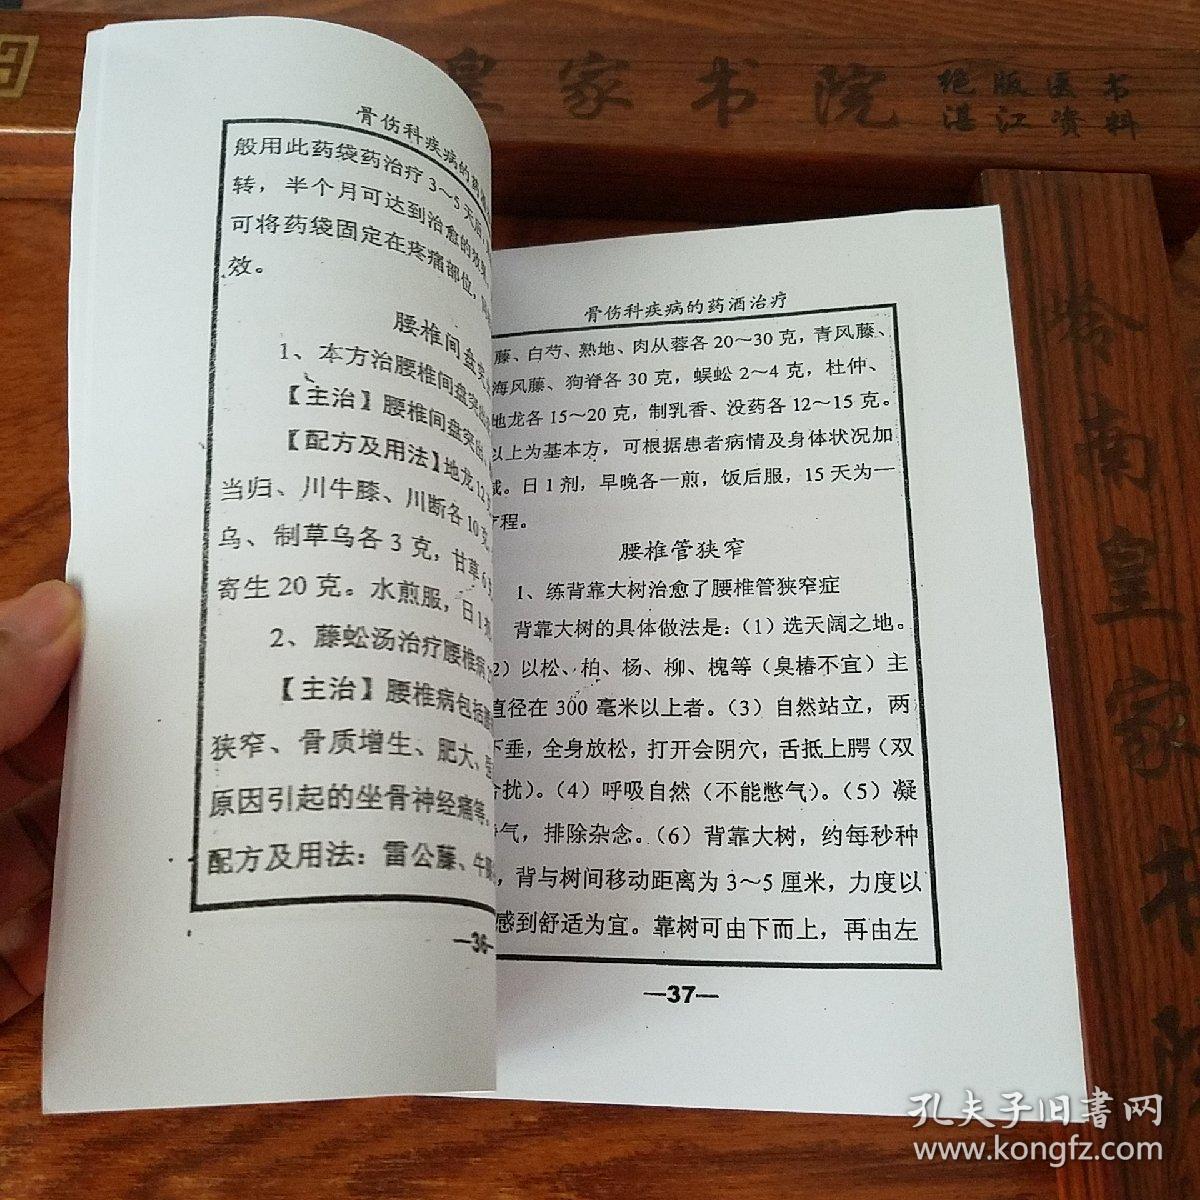 皇家书院
绝版医书
湛江资料
岭南皇家书院
骨伤科疾病的药
般用此药袋药治疗3～5天后
转，半个月可达到治愈的效
可将药袋固定在疼痛部位，
效。
腰椎间盘突
1、本方治腰椎间盘突出
【主治】腰椎间盘突出
【配方及用法】地龙12克
当归、川牛膝、川断各10克
乌、制草乌各3克，甘草6
寄生20克。水煎服，日1剂
2、藤蚣汤治疗腰椎病
【主治】腰椎病包括
狭窄、骨质增生、肥大、
原因引起的坐骨神经痛等。
配方及用法：雷公藤、牛
—36—
骨伤科疾病的药酒治疗
藤、白芍、熟地、肉从蓉各20～30克，青风藤、
海风藤、狗脊各30克，蜈蚣2～4克，杜仲、
地龙各15～20克，制乳香、没药各12～15克。
以上为基本方，可根据患者病情及身体状况加
减。日1剂，早晚各一煎，饭后服，15天为一
疗程。
腰椎管狭窄
1、练背靠大树治愈了腰椎管狭窄症
背靠大树的具体做法是：（1）选天阔之地。
2）以松、柏、杨、柳、槐等（臭椿不宜）主
直径在300毫米以上者。（3）自然站立，两
下垂，全身放松，打开会阴穴，舌抵上腭（双
扰）。（4）呼吸自然（不能憋气）。（5）凝
气，排除杂念。（6）背靠大树，约每秒种
，背与树间移动距离为3～5厘米，力度以
感到舒适为宜。靠树可由下而上，再由左
—37—
孔夫子旧書网
www.kongfz.com